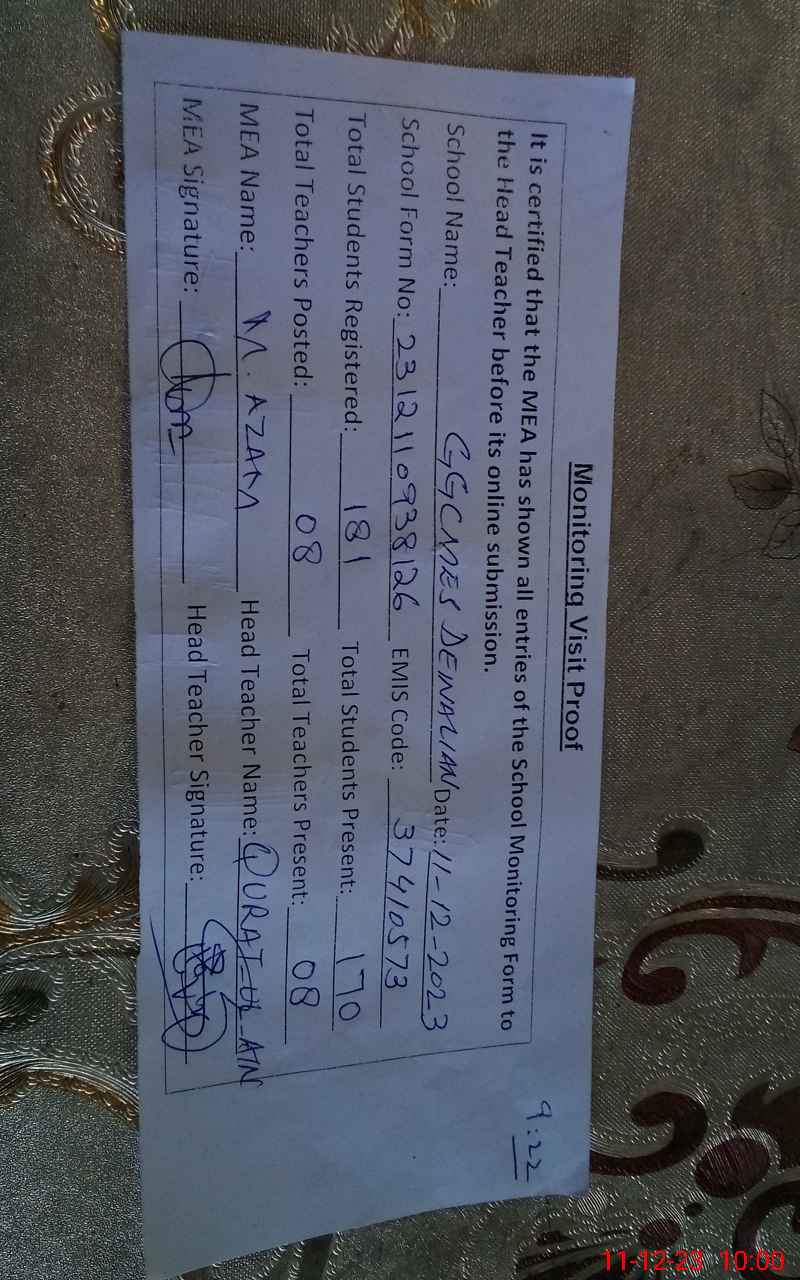 Monitoring Visit Proof
It is certified that the MEA has shown all entries of the School Monitoring Form to
the Head Teacher before its online submission.
School Name: GGCMES DEWALIAN Date: 11-12-2023
School Form No: 2312110938126 EMIS Code: 37410573
Total Students Registered: 181 Total Students Present: 170
Total Teachers Posted: 08 Total Teachers Present: 08
MEA Name: M. AZAM Head Teacher Name: QURAT-UL-AIN
MEA Signature: Head Teacher Signature:
9:22
11-12-23 10:00